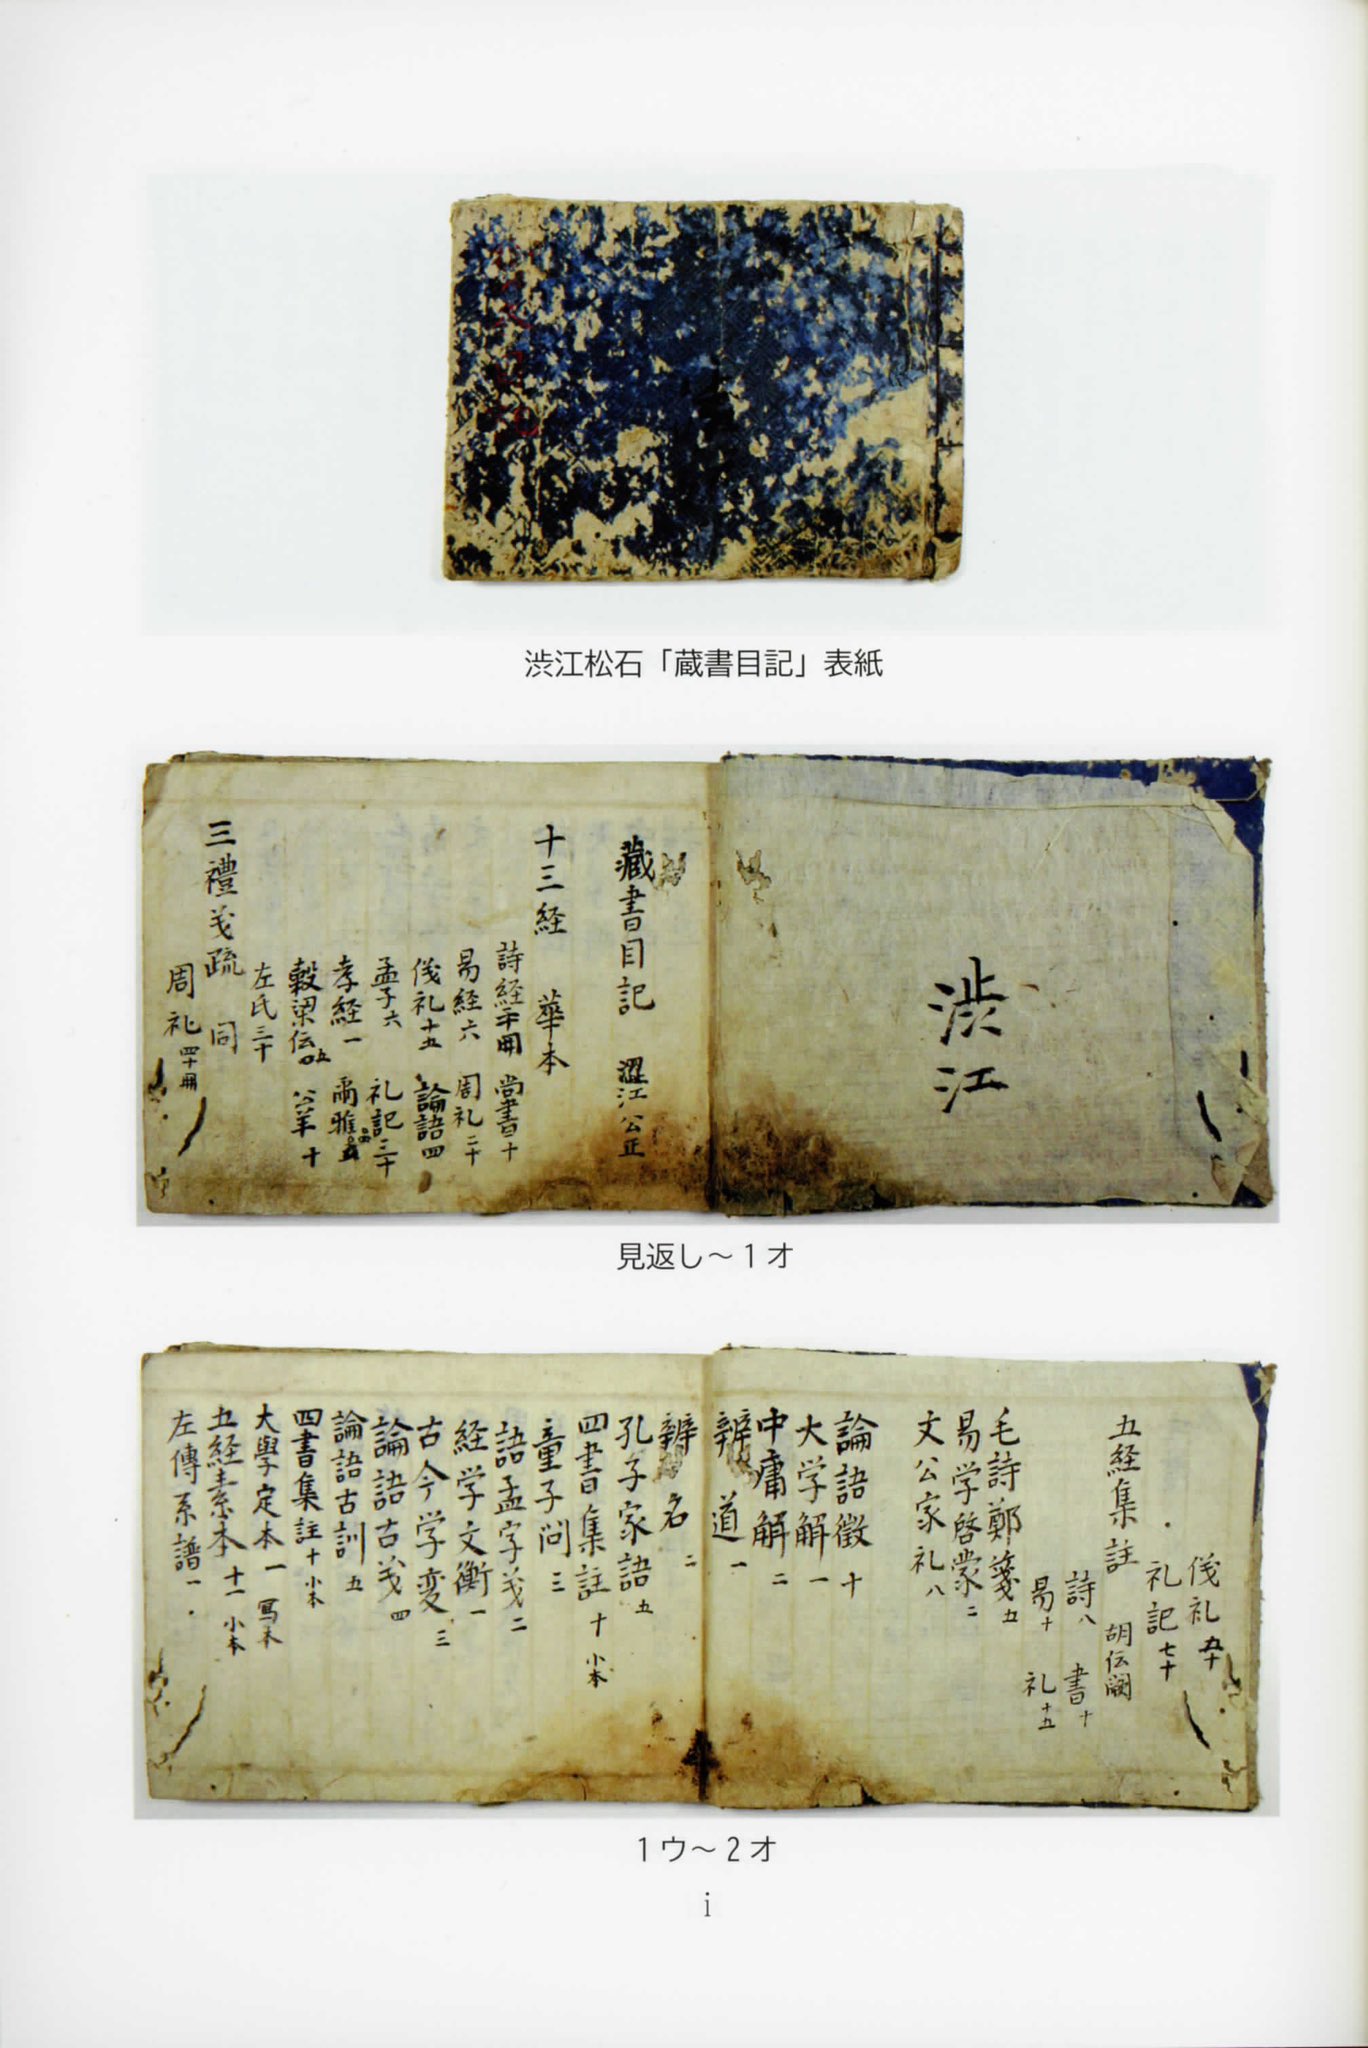 渋江松石「蔵書目記」表紙
渋江
藏書目記 澀江公正
十三経 華本
詩経二十冊 尚書十
易経六 周礼二十
儀礼十五 論語四
孟子六 礼記三十
孝経一 爾雅
穀梁伝五 公羊十
左氏三十
三禮義疏 同
周礼四十冊
見返し～1オ
儀礼五十
礼記七十
五経集註 胡伝闕
詩八 書十
易十 礼十五
毛詩鄭箋五
易学啓蒙二
文公家礼八
論語徴十
大学解一
中庸解二
辨道一
辨名二
孔子家語五
四書集註十 小本
童子問三
語孟字義二
経学文衡一
古今学変三
論語古義四
論語古訓五
四書集註十 小本
大學定本一 写本
五経素本十一 小本
左傳系譜一
1ウ～2オ
i